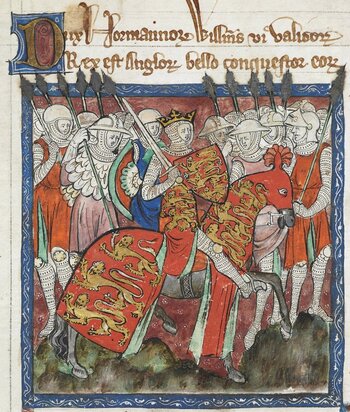 Dux Normannor Willm̄s vi validor
Rex est Anglor bello conquestor eor